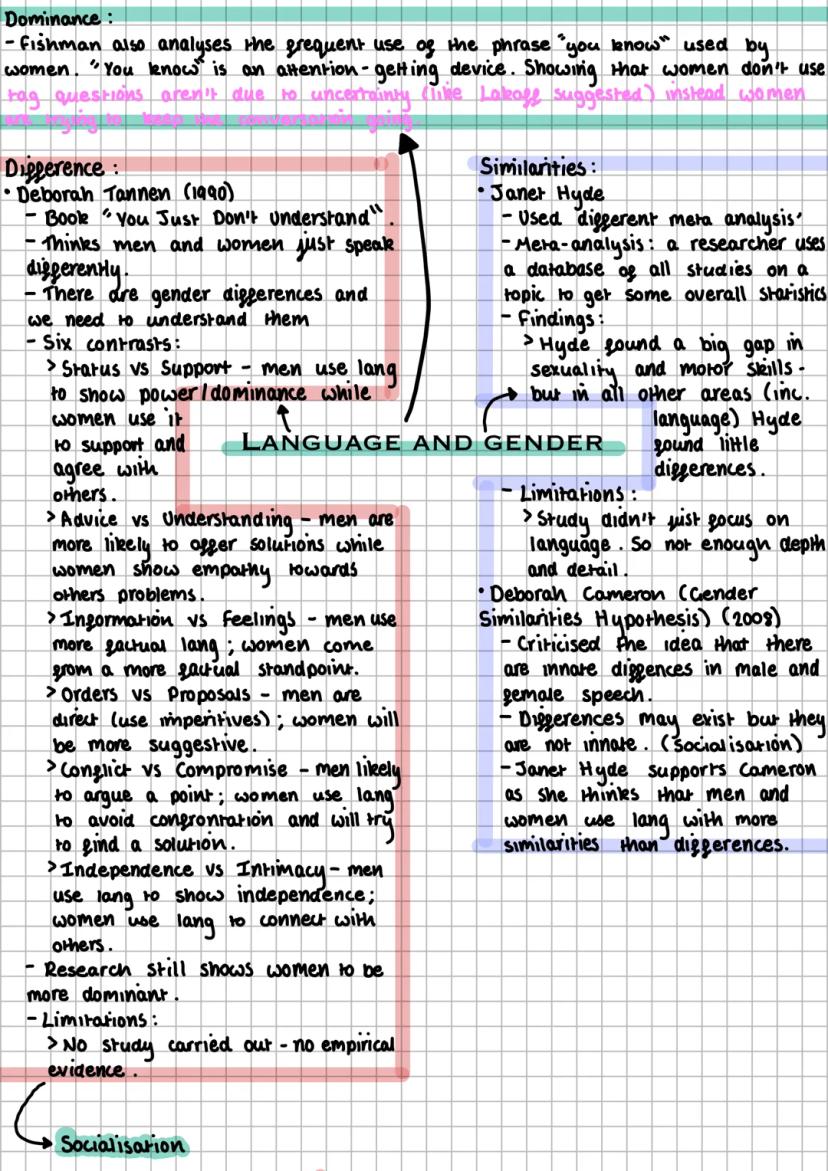 Dominance :
- Fishman also analyses the frequent use of the phrase "you know" used by
women. "You know" is an attention-getting device. Showing that women don't use
tag questions aren't due to uncertainty (like Lakoff suggested) instead women
are trying to keep the conversation going.
Difference :
• Deborah Tannen (1990)
- Book "You Just Don't Understand".
- Thinks men and women just speak
differently.
- There are gender differences and
we need to understand them
- Six contrasts:
> Status vs Support - men use lang
to show power/dominance while
women use it
to support and
agree with
others.
> Advice vs Understanding - men are
more likely to offer solutions while
women show empathy towards
others problems.
> Information vs Feelings - men use
more factual lang ; women come
from a more factual standpoint.
> Orders vs Proposals - men are
direct (use imperitives) ; women will
be more suggestive.
> Conflict vs Compromise - men likely
to argue a point; women use lang
to avoid confrontation and will try
to find a solution.
> Independence vs Intimacy - men
use lang to show independence;
women use lang to connect with
others.
- Research still shows women to be
more dominant.
- Limitations:
> No study carried out - no empirical
evidence.
Socialisation
LANGUAGE AND GENDER
Similarities:
• Janet Hyde
- Used 'different meta analysis'
- Meta-analysis: a researcher uses
a database of all studies on a
topic to get some overall statistics
- Findings:
> Hyde found a big gap in
sexuality and motor skills -
but in all other areas (inc.
language) Hyde
found little
differences.
- Limitations :
> Study didn't just focus on
language. So not enough depth
and detail.
• Deborah Cameron (Gender
Similarities Hypothesis) (2008)
- Criticised the idea that there
are innate diffences in male and
female speech.
- Differences may exist but they
are not innate. (Socialisation)
- Janet Hyde supports Cameron
as she thinks that men and
women use lang with more
similarities than differences.